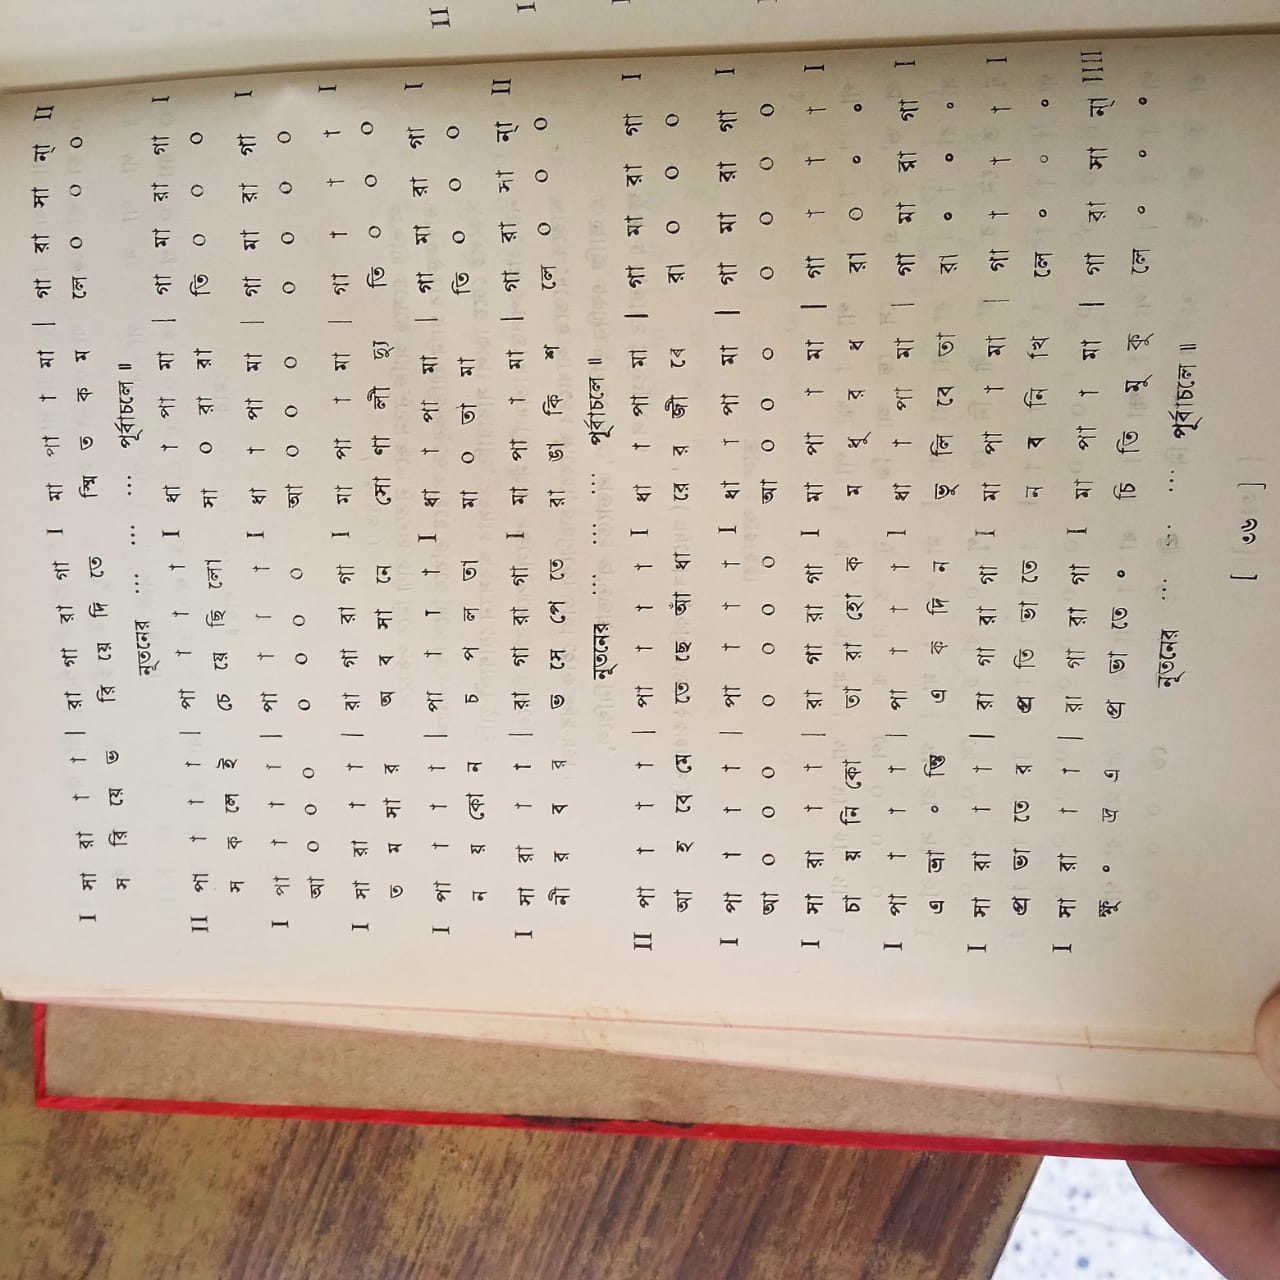 I সা রা া া | রা গা রা গা I মা পা া মা | গা রা সা ন্‌া II
স রি য়ে ভ রি য়ে দি তে স্মি ত ক ম লে ০ ০ ০
নূতনের ... ... ... পূর্বাচলে ॥
II পা া া া | পা া া া I ধা া পা মা | গা মা রা গা I
স ক লে ই চে য়ে ছি লো সা ০ রা রা তি ০ ০ ০
I পা া া া | পা া া া I ধা া পা মা | গা মা রা গা I
আ ০ ০ ০ ০ ০ ০ ০ আ ০ ০ ০ ০ ০ ০ ০
I সা রা া া | রা গা রা গা I মা পা া মা | গা া া া I
ত ম সা র অ ব সা নে সো ণা লী দ্যু তি ০ ০
I পা া া া | পা া া া I ধা া পা মা | গা মা রা গা I
ন য় কো ন চ প ল তা মা ০ তা মা তি ০ ০ ০
I সা রা া া | রা গা রা গা I মা পা া মা | গা রা সা ন্‌া II
নী র ব র ভ সে পে তে রা ঙা কি শ লে ০ ০ ০
নূতনের ... ... ... পূর্বাচলে ॥
II পা া া া | পা া া া I ধা া পা মা | গা মা রা গা I
আ হ বে মে তে ছে আঁ ধা রে র জী বে রা ০ ০ ০
I পা া া া | পা া া া I ধা া পা মা | গা মা রা গা I
আ ০ ০ ০ ০ ০ ০ ০ আ ০ ০ ০ ০ ০ ০ ০
I সা রা া া | রা গা রা গা I মা পা া মা | গা া া া I
চা য় নি কো তা রা হো ক ম ধু র ধ রা ০ ০ ০
I পা া া া | পা া া া I ধা া পা মা | গা মা রা গা I
এ ভ্রা ০ ন্তি এ ক দি ন ভু লি বে তা রা ০ ০ ০
I সা রা া া | রা গা রা গা I মা পা া মা | গা া া া I
প্র ভা তে র প্র তি ভা তে ন ব নি খি লে ০ ০ ০
I সা রা া া | রা গা রা গা I মা পা া মা | গা রা সা ন্‌া IIII
ক্ষু ০ দ্র এ প্র ভা তে ০ চি তি মু কু লে ০ ০ ০
নূতনের ... ... ... পূর্বাচলে ॥
[ ৩৬ ]